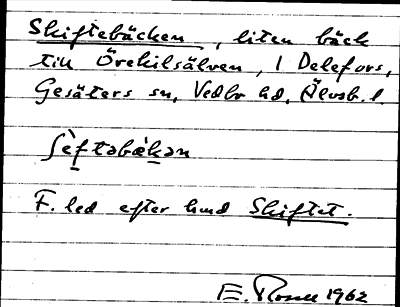 Skiftebäcken, liten bäck
till Örekilsälven, i Delefors,
Gesäters sn, Vedbo hd, Älvsb. l.
ʃèftəbækən
F. led efter hmd Skiftet.
E. 1962